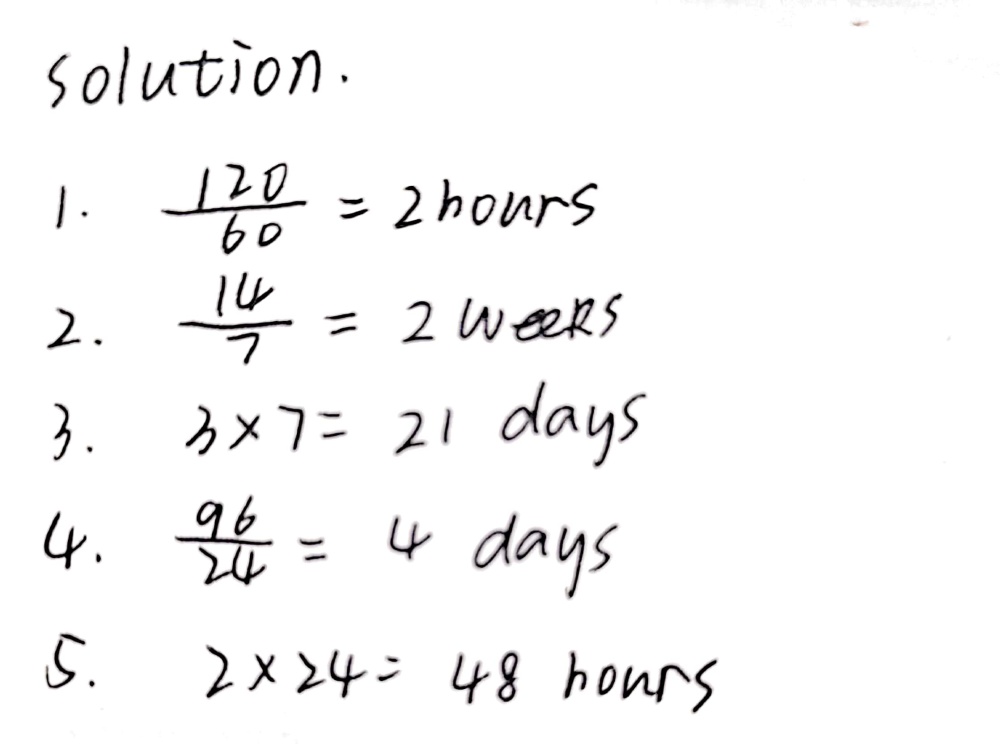 solution.
1. 120/60 = 2 hours
2. 14/7 = 2 weeks
3. 3×7= 21 days
4. 96/24 = 4 days
5. 2×24= 48 hours